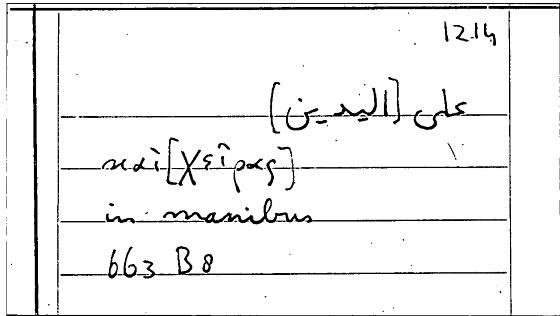 1214
على [اليدين]
καὶ [χεῖρας]
in manibus
663 B 8